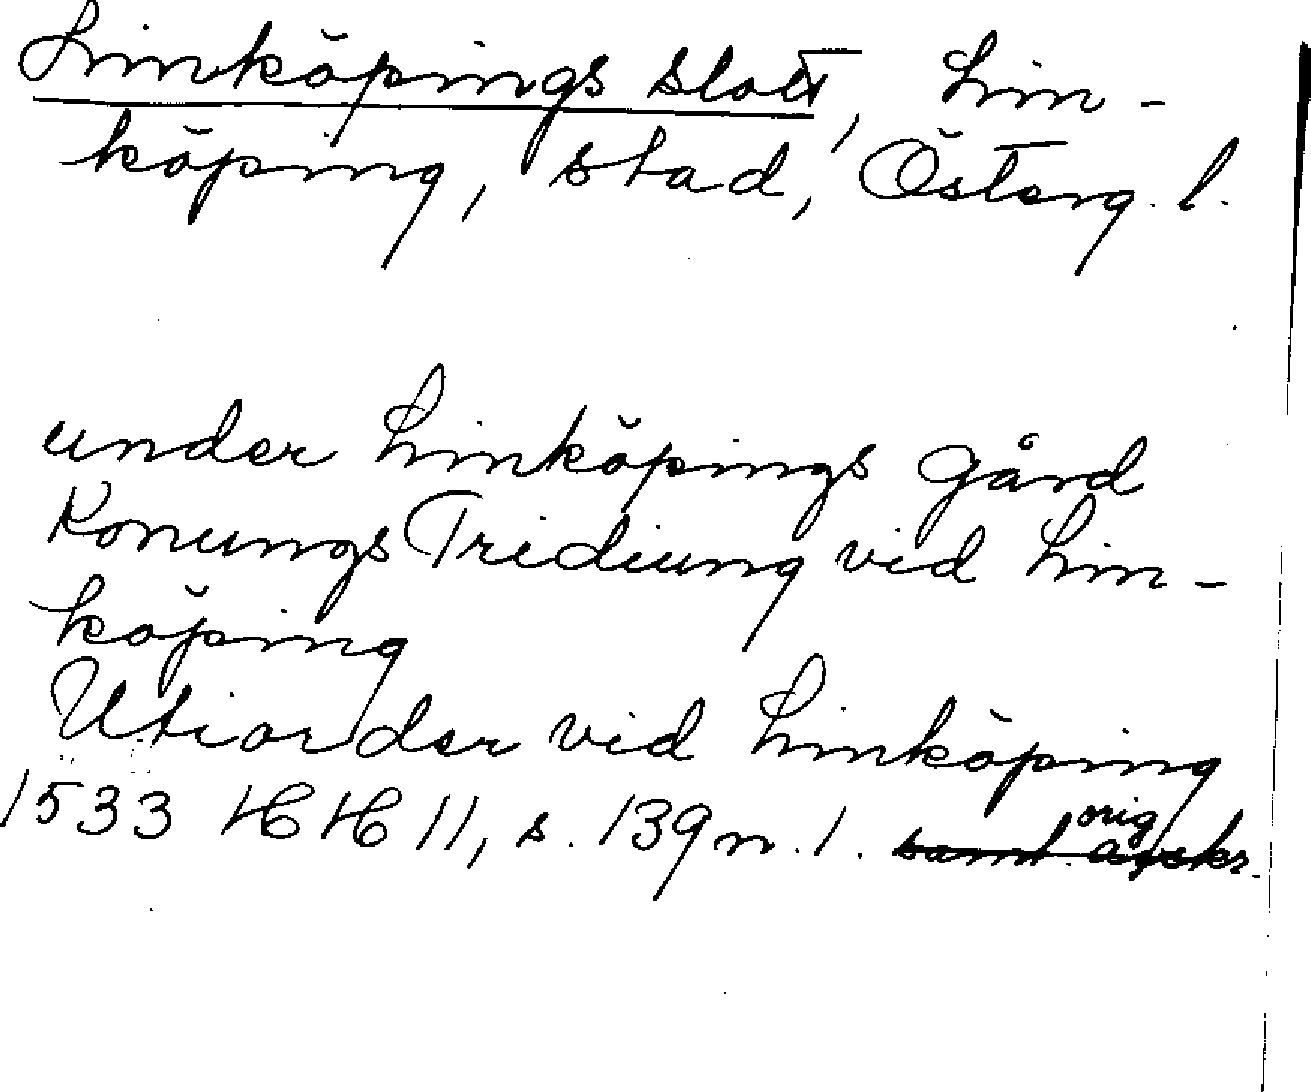 Linköpings slott, Lin-
köping, stad, Österg. l.
under Linköpings gård
Konungs Tridiung vid Lin-
köping
Utiorder vid Linköping
orig
1533 HH 11, s. 139 n. 1. samt. avskr.